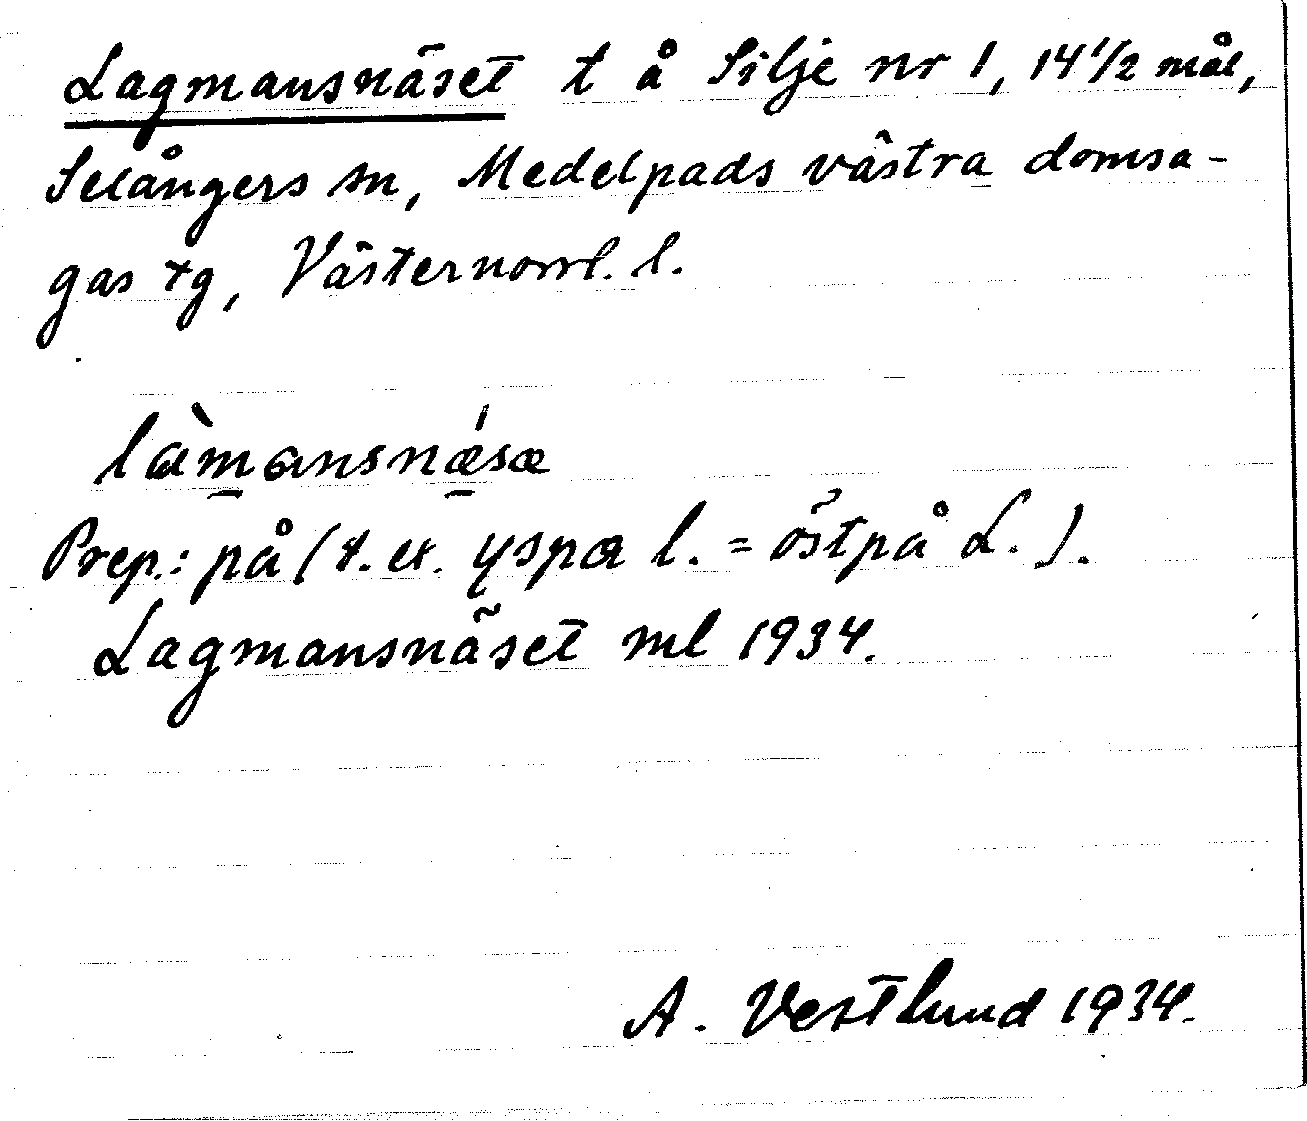 Lagmansnäset t å Silje nr 1, 14 1/2 mål,
Selångers sn, Medelpads västra domsa-
gas tg, Västernorrl. l.
làmansnǽsæ
Prep.: på (t. ex. yspa l. = östpå L.).
Lagmansnäset ml 1934.
A. Vestlund 1934.